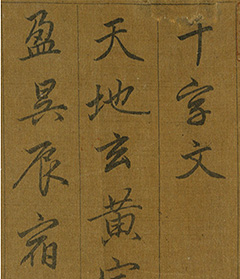 千字文
天地玄黄宇
盈昃辰宿